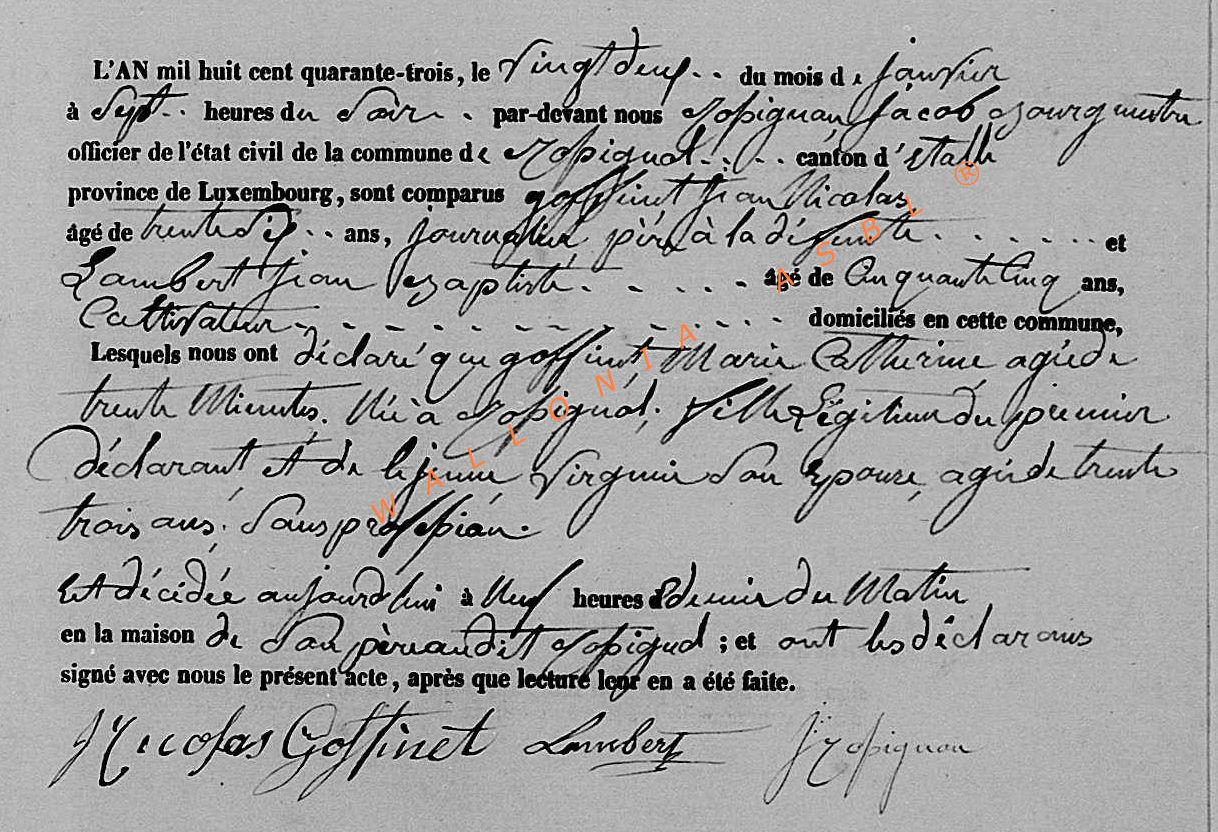 L'AN mil huit cent quarante-trois, le Vingt deux du mois de janvier
à Sept heures du Soir par-devant nous Jacob Bourgmestre
officier de l'état civil de la commune de canton d'Etalle
province de Luxembourg, sont comparus goffinet jean Nicolas
âgé de trente Six ans, journalier, père à la défunte et
Lambert jean Baptiste âgé de Cinquante Cinq ans,
Cultivateur domiciliés en cette commune,
Lesquels nous ont déclaré que goffinet Marie Catherine agée de
trente Minutes. Née à fille Légitime du premier
déclarant, et de lejeune Virginie Son Epouse, agée de trente
trois ans, Sans profession.
Est décédée aujourd'hui à Neuf heures demie du Matin
en la maison de Son père audit ; et ont les déclarans
signé avec nous le présent acte, après que lecture leur en a été faite.
Nicolas Goffinet Lambert
WALLONIA ASBL ®